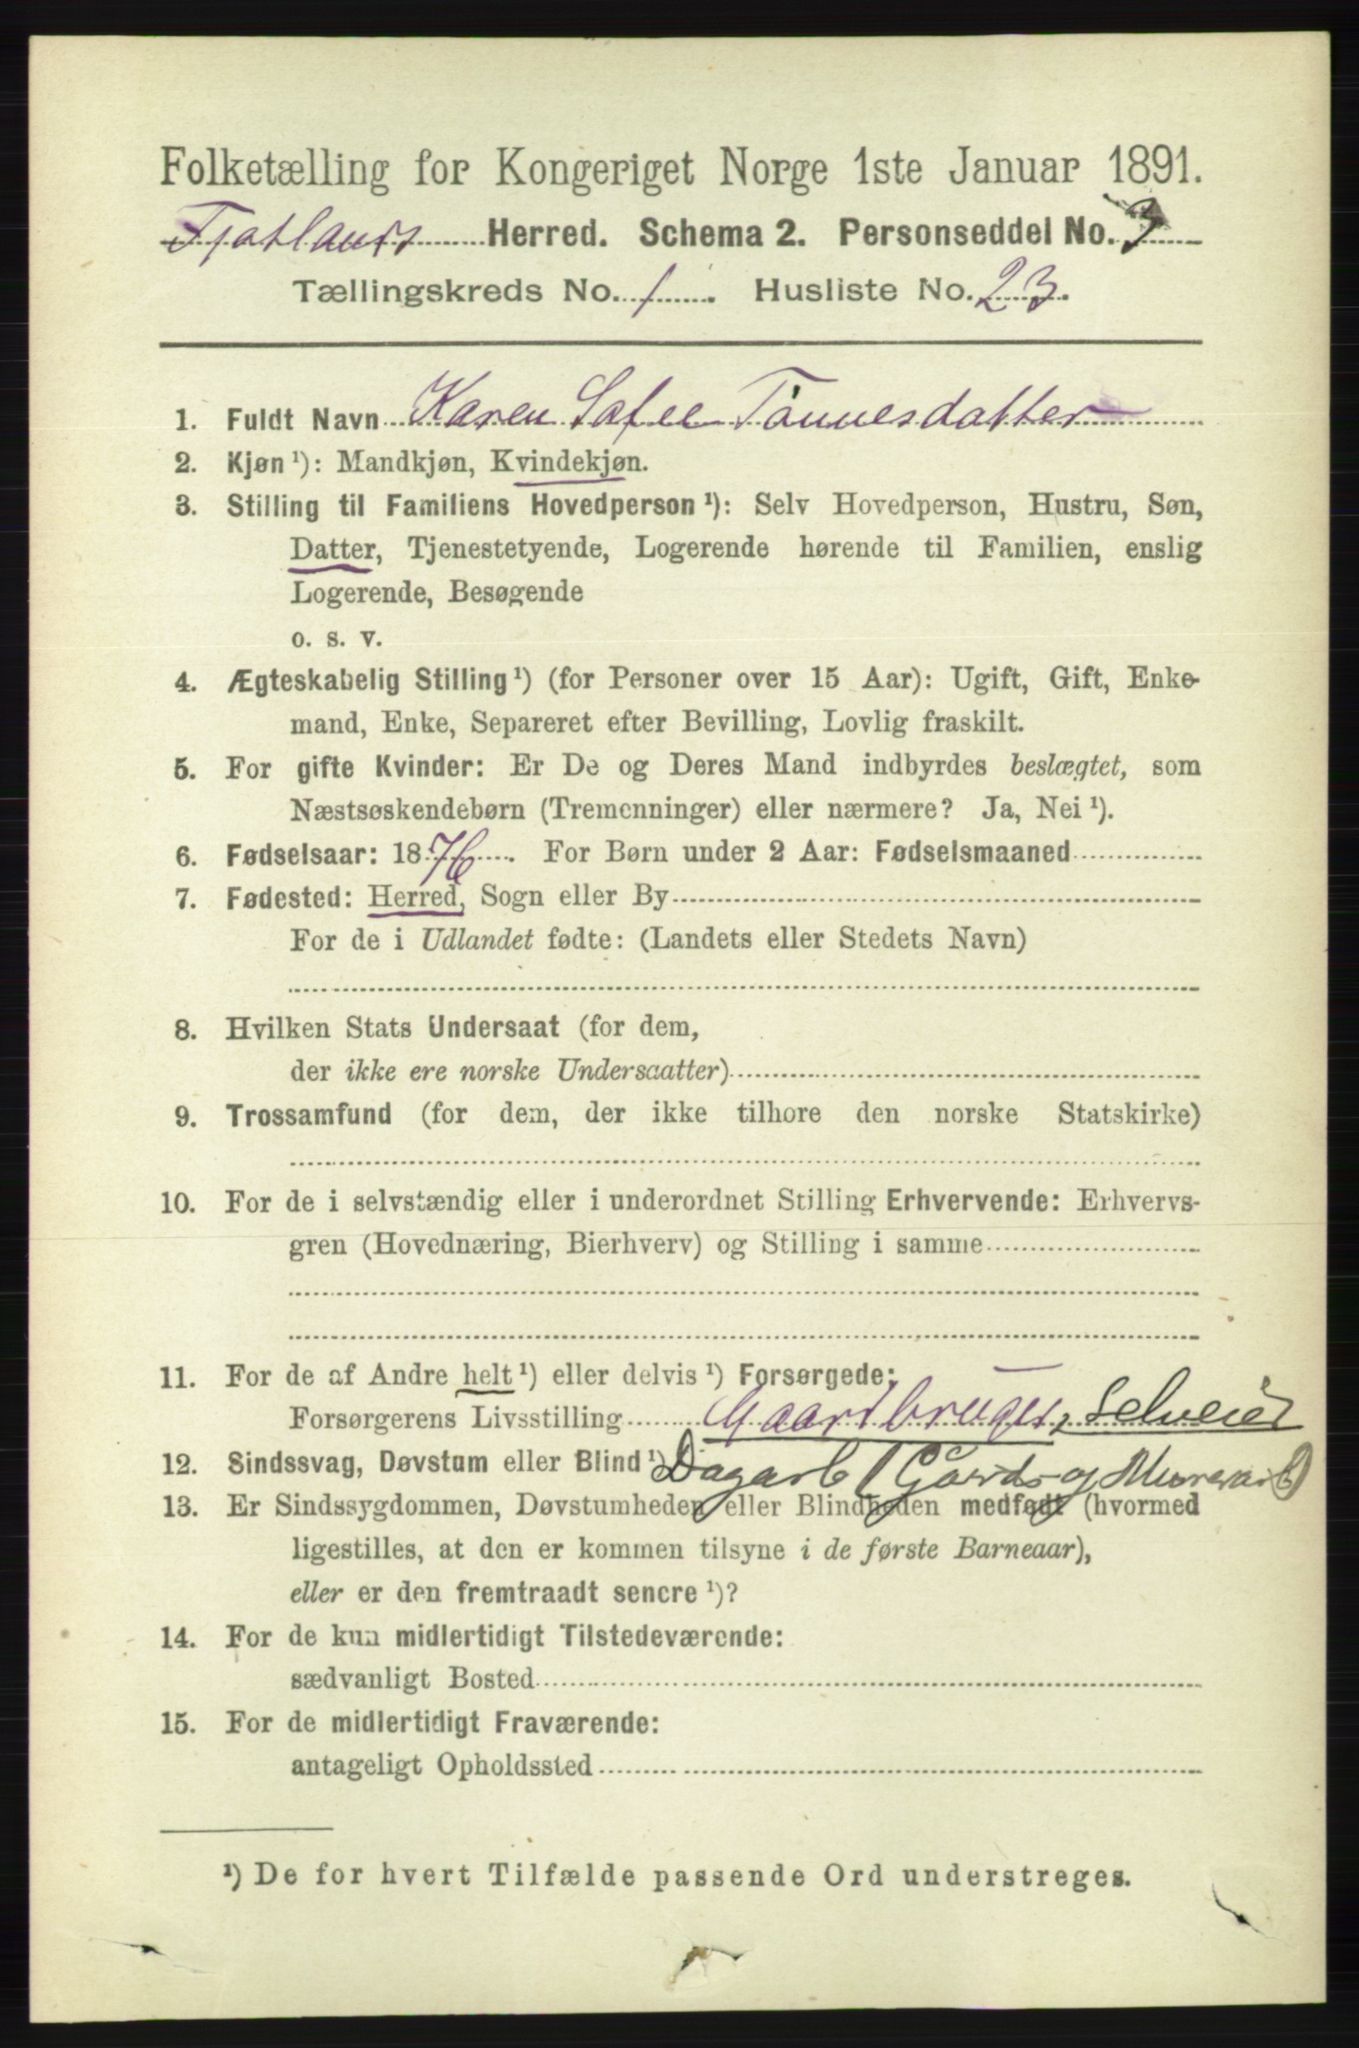 Folketælling for Kongeriget Norge 1ste Januar 1891.
Fjotlands Herred. Schema 2. Personseddel No. 3
Tællingskreds No. 1. Husliste No. 23.
1. Fuldt Navn Karen Sofee Tönnesdatter
2. Kjøn ¹): Mandkjøn, Kvindekjøn.
3. Stilling til Familiens Hovedperson ¹): Selv Hovedperson, Hustru, Søn,
Datter, Tjenestetyende, Logerende hørende til Familien, enslig
Logerende, Besøgende
o. s. v.
4. Ægteskabelig Stilling ¹) (for Personer over 15 Aar): Ugift, Gift, Enke-
mand, Enke, Separeret efter Bevilling, Lovlig fraskilt.
5. For gifte Kvinder: Er De og Deres Mand indbyrdes beslægtet, som
Næstsøskendebørn (Tremenninger) eller nærmere? Ja, Nei ¹).
6. Fødselsaar: 1876. For Børn under 2 Aar: Fødselsmaaned
7. Fødested: Herred, Sogn eller By
For de i Udlandet fødte: (Landets eller Stedets Navn)
8. Hvilken Stats Undersaat (for dem,
der ikke ere norske Undersaatter)
9. Trossamfund (for dem, der ikke tilhore den norske Statskirke)
10. For de i selvstændig eller i underordnet Stilling Erhvervende: Erhvervs-
gren (Hovednæring, Bierhverv) og Stilling i samme
11. For de af Andre helt ¹) eller delvis ¹) Forsørgede:
Forsørgerens Livsstilling Gaardbruger, Selveier
12. Sindssvag, Døvstum eller Blind ¹) Dagarb (Gaards og Murerarb)
13. Er Sindssygdommen, Døvstumheden eller Blindheden medfødt (hvormed
ligestilles, at den er kommen tilsyne i de første Barneaar),
eller er den fremtraadt senere ¹)?
14. For de kun midlertidigt Tilstedeværende:
sædvanligt Bosted
15. For de midlertidigt Fraværende:
antageligt Opholdssted
¹) De for hvert Tilfælde passende Ord understreges.